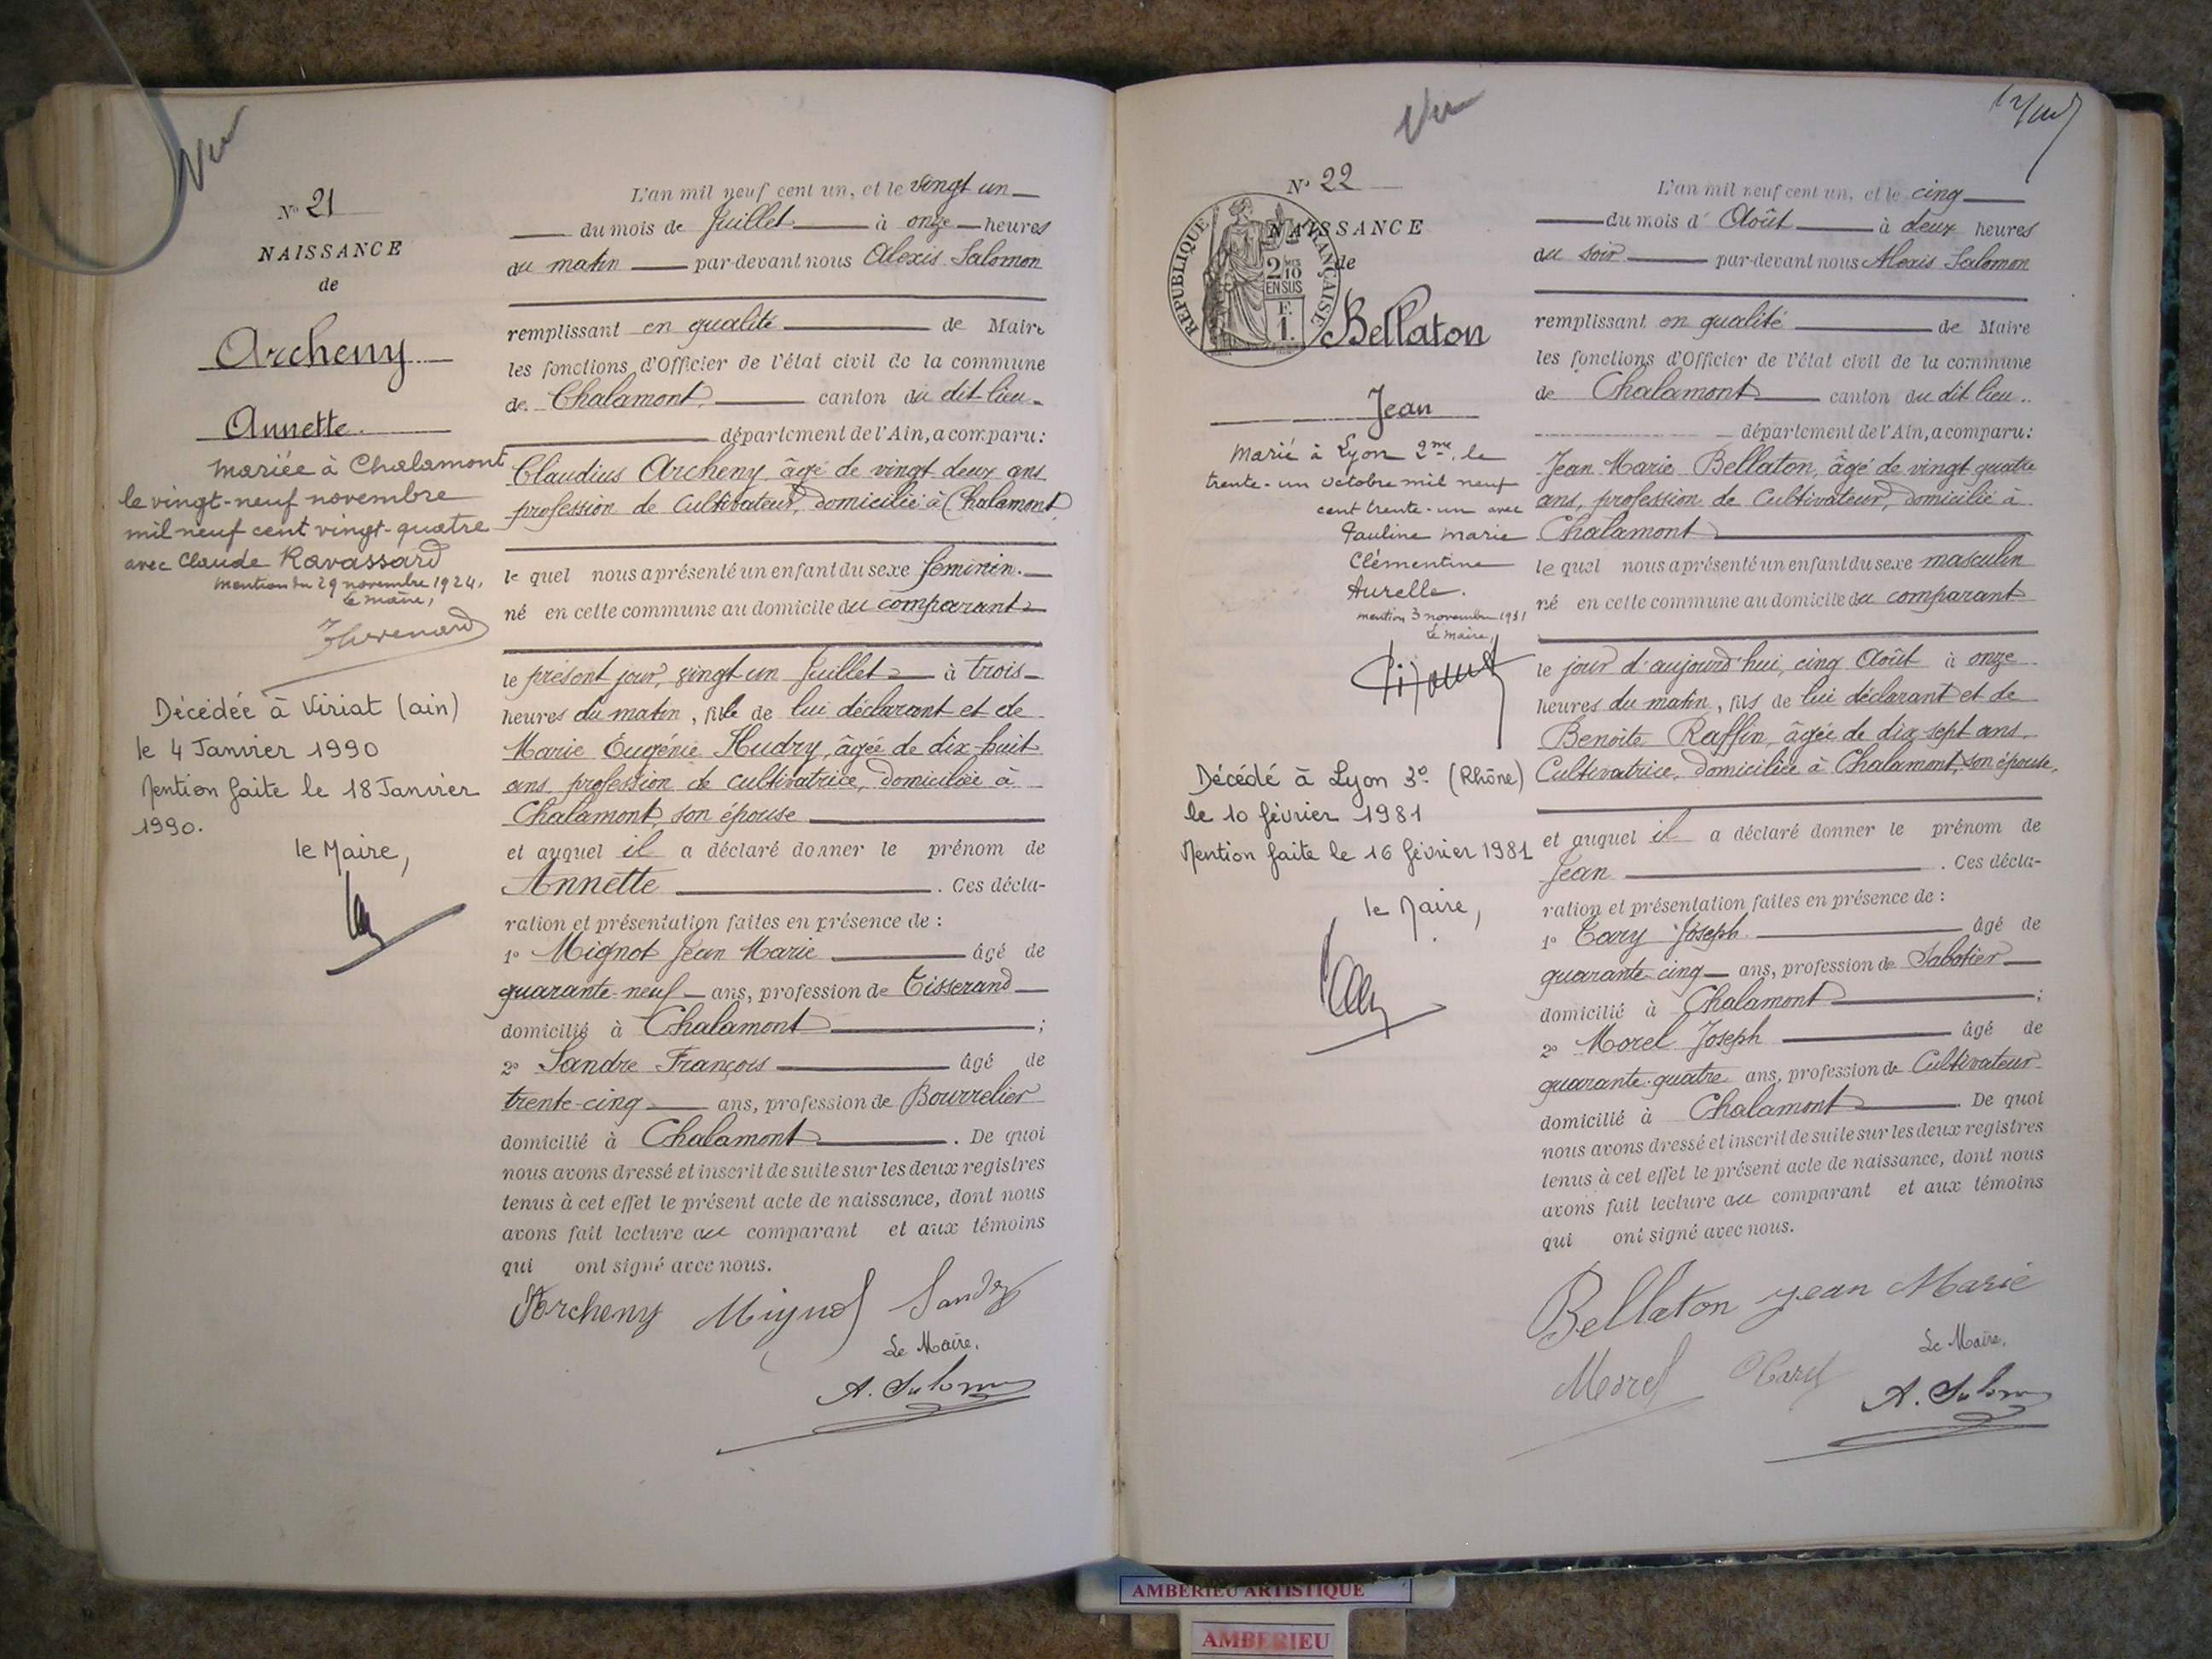 Vu
N° 21
NAISSANCE
de
Archeny
Annette.
mariée à Chalamont
le vingt-neuf novembre
mil neuf cent vingt-quatre
avec Claude Ravassard
mention du 29 novembre 1924.
Le maire,
Décédée à Viriat (ain)
le 4 Janvier 1990
Mention faite le 18 Janvier
1990.
le Maire,
L'an mil neuf cent un, et le vingt un
du mois de Juillet à onze heures
du matin par-devant nous Alexis Salomon
remplissant en qualité de Maire
les fonctions d'Officier de l'état civil de la commune
de Chalamont canton du dit lieu
département de l'Ain, a comparu:
Claudius Archeny âgé de vingt deux ans
profession de Cultivateur, domicilié à Chalamont
le quel nous a présenté un enfant du sexe féminin.
né en cette commune au domicile du comparant
le présent jour, vingt un Juillet à trois
heures du matin, fille de lui déclarant et de
Marie Eugénie Hudry, âgée de dix-huit
ans, profession de cultivatrice, domiciliée à
Chalamont, son épouse
et auquel il a déclaré donner le prénom de
Annette. Ces décla-
ration et présentation faites en présence de :
1° Mignot Jean Marie âgé de
quarante-neuf ans, profession de Tisserand
domicilié à Chalamont ;
2° Sandre François âgé de
trente-cinq ans, profession de Bourrelier
domicilié à Chalamont. De quoi
nous avons dressé et inscrit de suite sur les deux registres
tenus à cet effet le présent acte de naissance, dont nous
avons fait lecture au comparant et aux témoins
qui ont signé avec nous.
Archeny Mignot Sandre
Le Maire,
A. Salomon
Vu
N° 22
NAISSANCE
de
RÉPUBLIQUE FRANÇAISE
2/10 EN SUS
F.
1.
Bellaton
Jean
Marié à Lyon 2me, le
trente-un octobre mil neuf
cent trente-un avec
Pauline Marie
Clémentine
Aurelle.
mention 3 novembre 1931
Le maire,
Décédé à Lyon 3e (Rhône)
le 10 février 1981
Mention faite le 16 février 1981
le Maire,
L'an mil neuf cent un, et le cinq
du mois d'Août à deux heures
du soir par-devant nous Alexis Salomon
remplissant en qualité de Maire
les fonctions d'Officier de l'état civil de la commune
de Chalamont canton du dit lieu..
département de l'Ain, a comparu:
Jean Marie Bellaton, âgé de vingt quatre
ans, profession de Cultivateur, domicilié à
Chalamont
le quel nous a présenté un enfant du sexe masculin
né en cette commune au domicile du comparant
le jour d'aujourd'hui, cinq Août à onze
heures du matin, fils de lui déclarant et de
Benoîte Raffin, âgée de dix sept ans
Cultivatrice, domiciliée à Chalamont, son épouse,
et auquel il a déclaré donner le prénom de
Jean. Ces décla-
ration et présentation faites en présence de :
1° Joseph âgé de
quarante cinq ans, profession de Sabotier
domicilié à Chalamont ;
2° Morel Joseph âgé de
quarante-quatre ans, profession de Cultivateur
domicilié à Chalamont. De quoi
nous avons dressé et inscrit de suite sur les deux registres
tenus à cet effet le présent acte de naissance, dont nous
avons fait lecture au comparant et aux témoins
qui ont signé avec nous.
Bellaton Jean Marie
Morel
Le Maire,
A. Salomon
AMBERIEU ARTISTIQUE
AMBERIEU